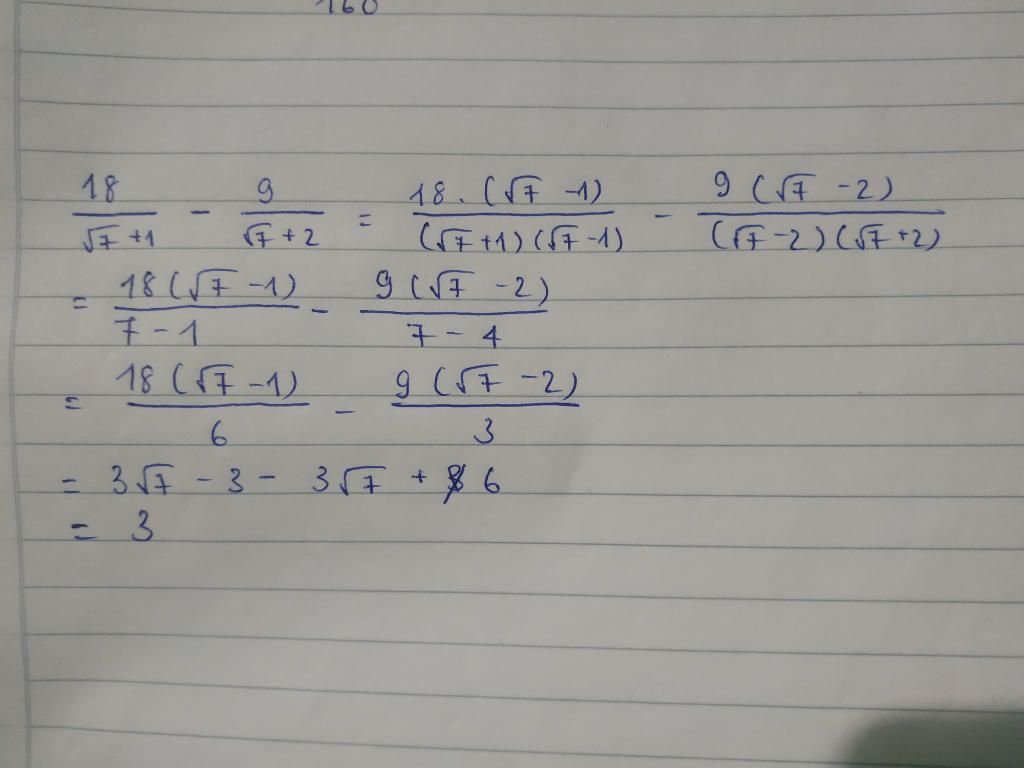 160
18/(√7 +1) - 9/(√7 + 2) = 18 . (√7 -1)/((√7 +1)(√7 -1)) - 9 (√7 - 2)/((√7 -2)(√7 +2))
= 18 (√7 -1)/(7 - 1) - 9 (√7 - 2)/(7 - 4)
= 18 (√7 -1)/6 - 9 (√7 - 2)/3
= 3√7 - 3 - 3√7 + 6
= 3